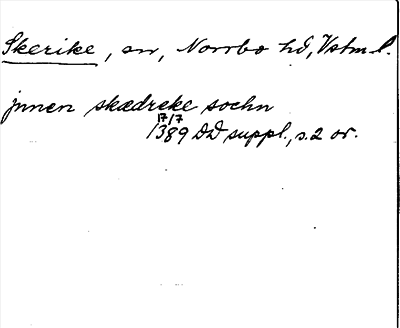 Skerike, sn, Norrbo hd, Vstm l.
jnnen skædreke sochn
17/7
1389 DD suppl., s. 2 or.